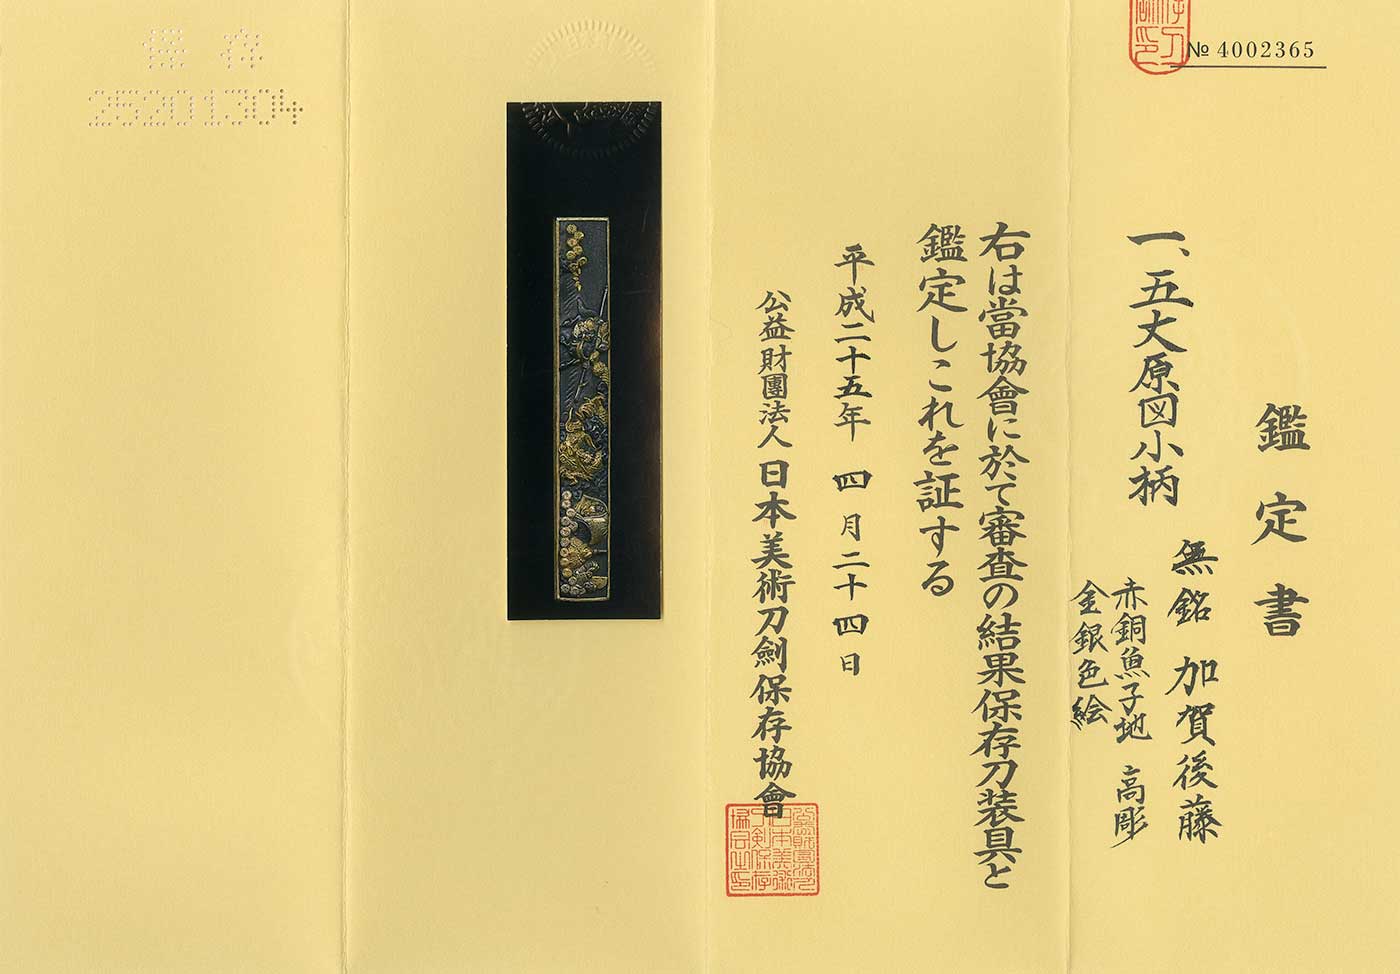 № 4002365
鑑定書
一、五丈原図小柄
無銘 加賀後藤
赤銅魚子地 高彫
金銀色絵
右は當協會に於て審査の結果保存刀装具と
鑑定しこれを証する
平成二十五年 四月二十四日
公益財團法人 日本美術刀劍保存協會
保存
25201304